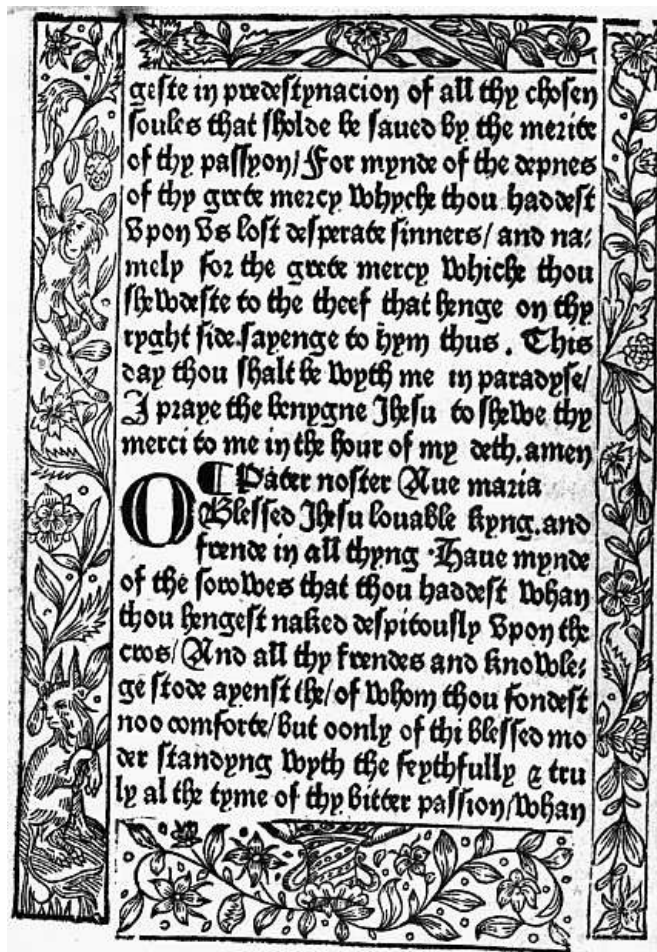 geste in predestynacion of all thy chosen
soules that sholde be saued by the merite
of thy passyon/ For mynde of the depnes
of thy grete mercy whyche thou haddest
vpon vs lost desperate sinners/ and na:
mely for the grete mercy whiche thou
shewdeste to the theef that henge on thy
ryght side.sayenge to hym thus. This
day thou shalt be wyth me in paradyse/
I praye the benygne Ihesu to shewe thy
merci to me in the hour of my deth.amen
¶ Pater noster Aue maria
O Blessed Ihesu louable kyng.and
frende in all thyng. Haue mynde
of the sorowes that thou haddest whan
thou hengest naked despitously vpon the
cros/ And all thy frendes and knowle:
ge stode ayenst the/ of whom thou fondest
noo comforte/ but oonly of thi blessed mo
der standyng wyth the feythfully & tru
ly al the tyme of thy bitter passion/ whan